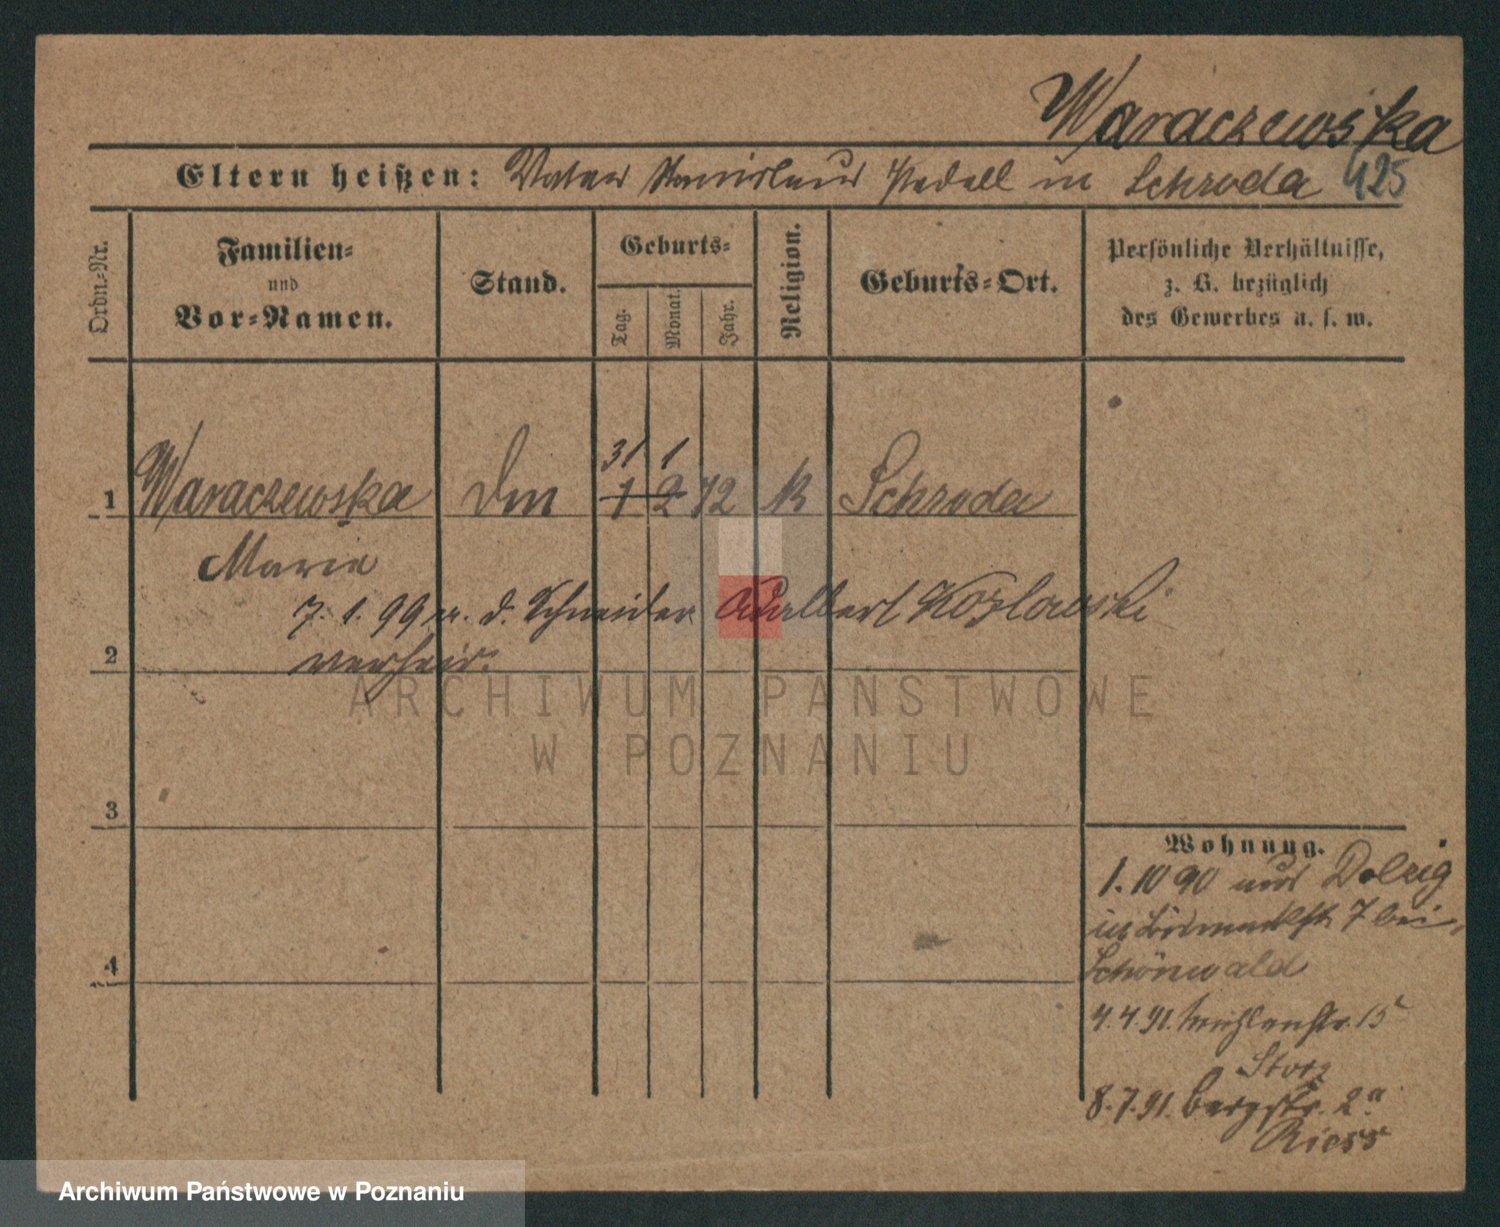 Waraczewska
Eltern heißen: Vater Stanislaus Pedell in Schroda 425
Ordn.-Nr.
Familien-
und
Vor-Namen.
Stand.
Geburts-
Tag.
Monat.
Jahr.
Religion.
Geburts-Ort.
Persönliche Verhältnisse,
z. B. bezüglich
des Gewerbes u. s. w.
31 1
1 Waraczewska 1 2 72 k Schroda
Marie
7. 1. 99 m. d. Schneider Adalbert Kozlowski
verheir.
2
3
4
Wohnung.
1. 10 90 aus Dolzig
in 7 bei
Schönwald
4.4.91. Mühlenstr. 15
Storz
8.7.91. Bergstr. 2a
Riess
ARCHIWUM PAŃSTWOWE
W POZNANIU
Archiwum Państwowe w Poznaniu